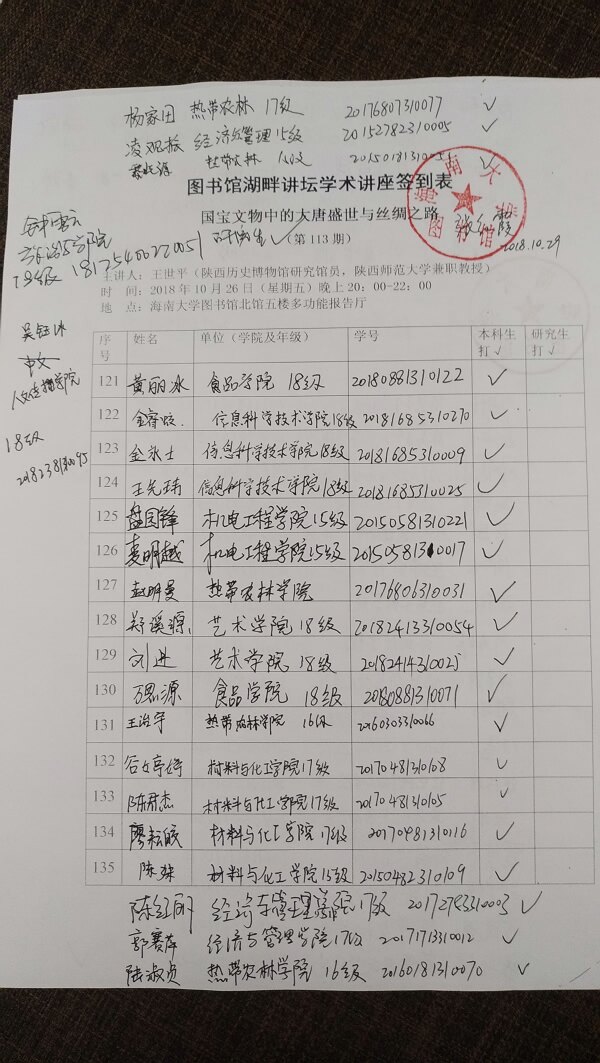 杨家田 热带农林 17级 20176807310077 ✓
凌观 经济管理15级 20152782310005 ✓
热带农林 ✓
图书馆湖畔讲坛学术讲座签到表
国宝文物中的大唐盛世与丝绸之路
(第 113 期)
海南大学
图书馆
2018.10.29
学院 研究生 ✓
18级 18125400220051
主讲人:王世平(陕西历史博物馆研究馆员,陕西师范大学兼职教授)
时 间:2018 年 10 月 26 日(星期五)晚上 20:00-22:00
地 点:海南大学图书馆北馆五楼多功能报告厅
吴钰冰
人文传播学院
18级
序号 姓名 单位(学院及年级) 学号 本科生打√ 研究生打√
121 黄丽冰 食品学院 18级 20180881310122 ✓
122 信息科学技术学院18级 20181685310270 ✓
123 金永士 信息科学技术学院18级 20181685310009 ✓
124 王先玮 信息科学技术学院18级 20181685310025 ✓
125 盘国锋 机电工程学院15级 20150581310221 ✓
126 明越 机电工程学院15级 20150581310017 ✓
127 赵明曼 热带农林学院 20176806310031 ✓
128 郑溪源 艺术学院 18级 20182413310054 ✓
129 刘进 艺术学院 18级 20182414310025 ✓
130 万思源 食品学院 18级 20180881310071 ✓
131 王治宇 热带农林学院 16级 20160303310066 ✓
132 谷文婷婷 材料与化工学院17级 20170481310108 ✓
133 陈君杰 材料与化工学院17级 20170481310105 ✓
134 廖耘皎 材料与化工学院17级 20170481310116 ✓
135 陈 材料与化工学院15级 20150482310109 ✓
陈红丽 经济与管理学院17级 20172783310003 ✓
郭赛萍 经济与管理学院17级 20171713310012 ✓
陆淑贞 热带农林学院 16级 20160181310070 ✓